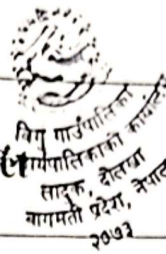 विगु गाउँपालिका
गाउँपालिकाको कार्यालय
लादुक, दोलखा
बागमती प्रदेश, नेपाल
२०७३